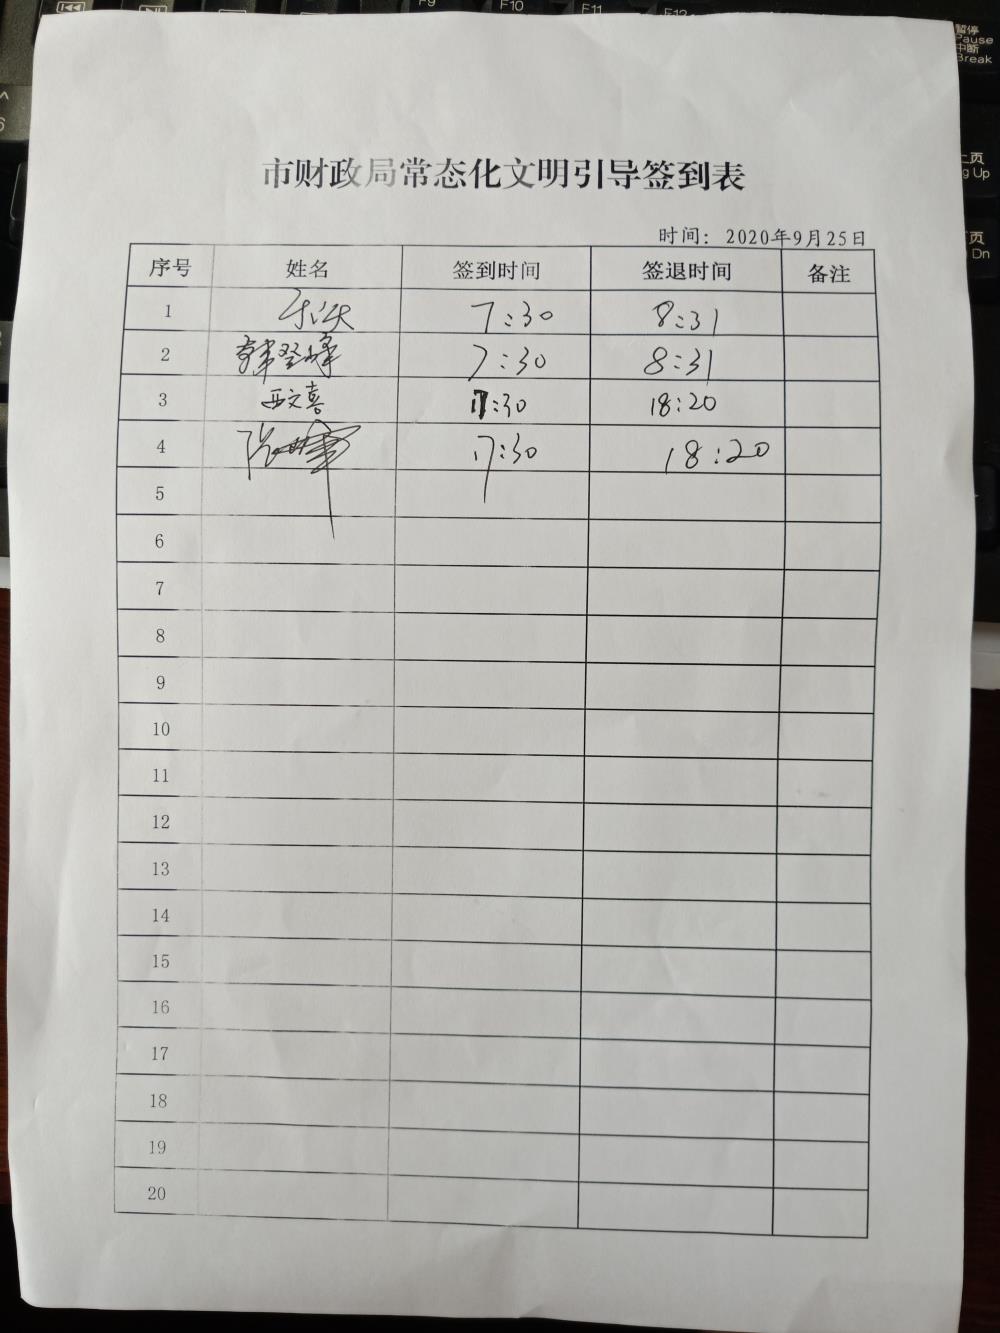 F9
F10
F11
F12
暂停
Pause
中断
Break
上页
Pg Up
页
Dn
6
市财政局常态化文明引导签到表
时间：2020年9月25日
序号 姓名 签到时间 签退时间 备注
1 7:30 8:31
2 韩登峰 7:30 8:31
3 西文喜 17:30 18:20
4 17:30 18:20
5
6
7
8
9
10
11
12
13
14
15
16
17
18
19
20